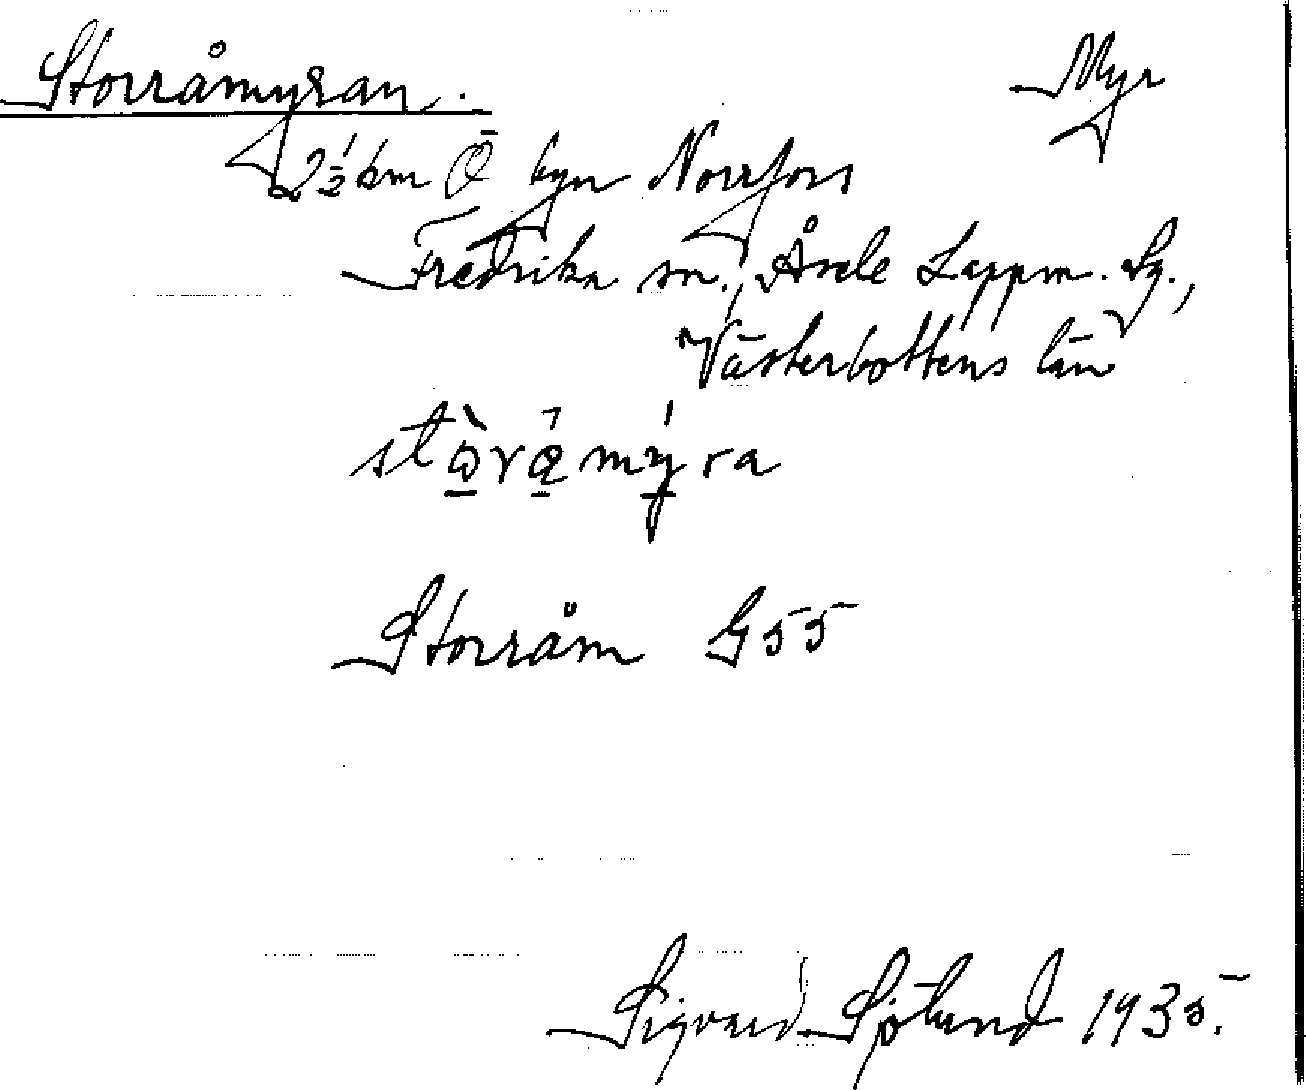 Storråmyran. Myr
2½ km Ö byn Norrfors
Fredrika sn., Åsele Lappm. Lg.,
Västerbottens län
Storråm G55
Sigvard Sjölund 1935.